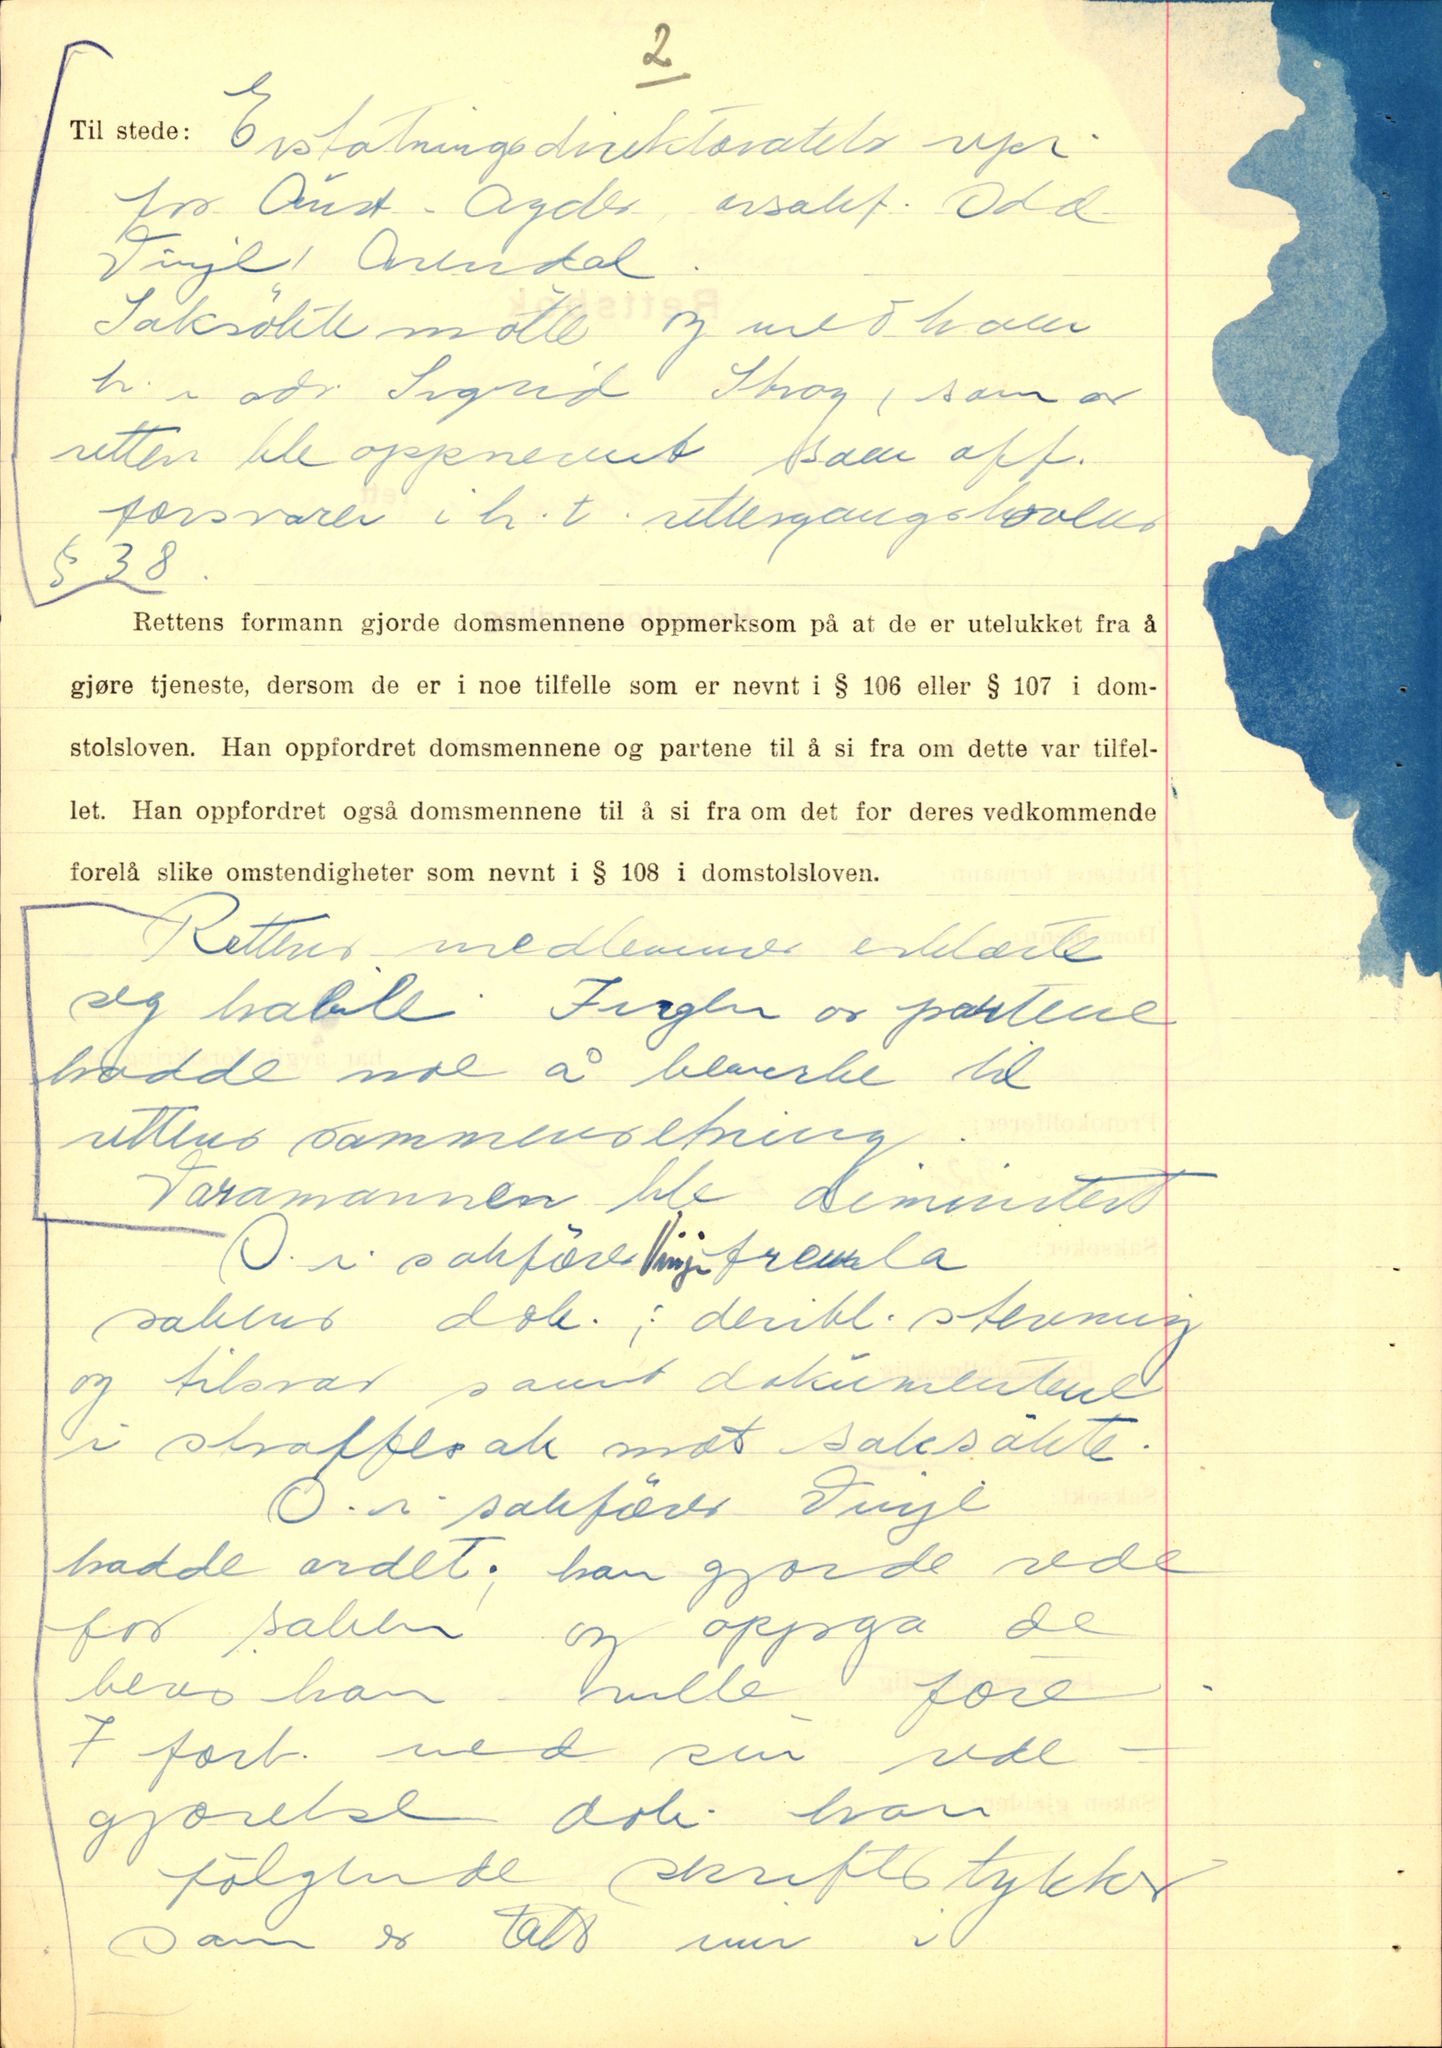 2
Til stede: Erstatningsdirektoratets repr.
for Aust-Agder, o.r.sakf. Odd
Vinje, Arendal.
Saksökte mötte og med ham
h.r.adv. Sigrid, som av
retten ble oppnevnt som off.
forsvarer i h.t. rettergangslovens
§ 38.
Rettens formann gjorde domsmennene oppmerksom på at de er utelukket fra å
gjøre tjeneste, dersom de er i noe tilfelle som er nevnt i § 106 eller § 107 i dom-
stolsloven. Han oppfordret domsmennene og partene til å si fra om dette var tilfel-
let. Han oppfordret også domsmennene til å si fra om det for deres vedkommende
forelå slike omstendigheter som nevnt i § 108 i domstolsloven.
Rettens medlemmer erklærte
seg habile. Ingen av partene
hadde noe å bemerke til
rettens sammensetning.
Varamannen ble dimintert
O.r.sakförer Vinje fremla
sakens dok.; deribl. stevning
og tilsvar samt dokumentene
i straffesak mot saksökte.
O.r.sakförer Vinje
hadde ordet; han gjorde rede
for saken og oppga de
bevis han ville före.
I forb. med sin rede-
gjörelse dok. han
fölgende skriftstykker
som er tatt inn i